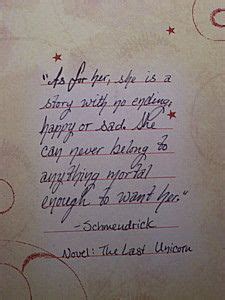 "As for her, she is a
story with no ending,
happy or sad. She
can never belong to
anything mortal
enough to want her."
-Schmendrick
Novel: The Last Unicorn